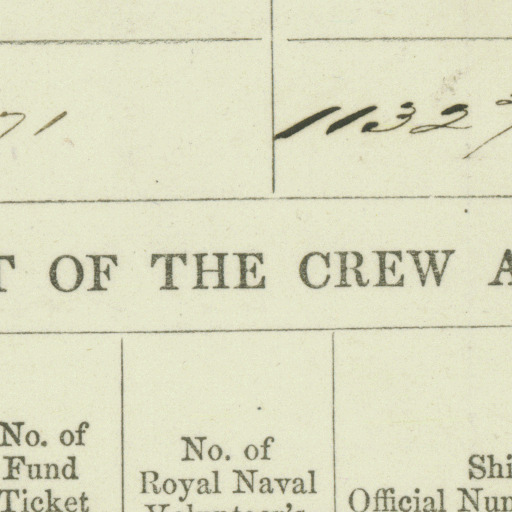 71 1132
T OF THE CREW A
No. of
Fund
Ticket
No. of
Royal Naval
Volunteer's
Shi
Official Num